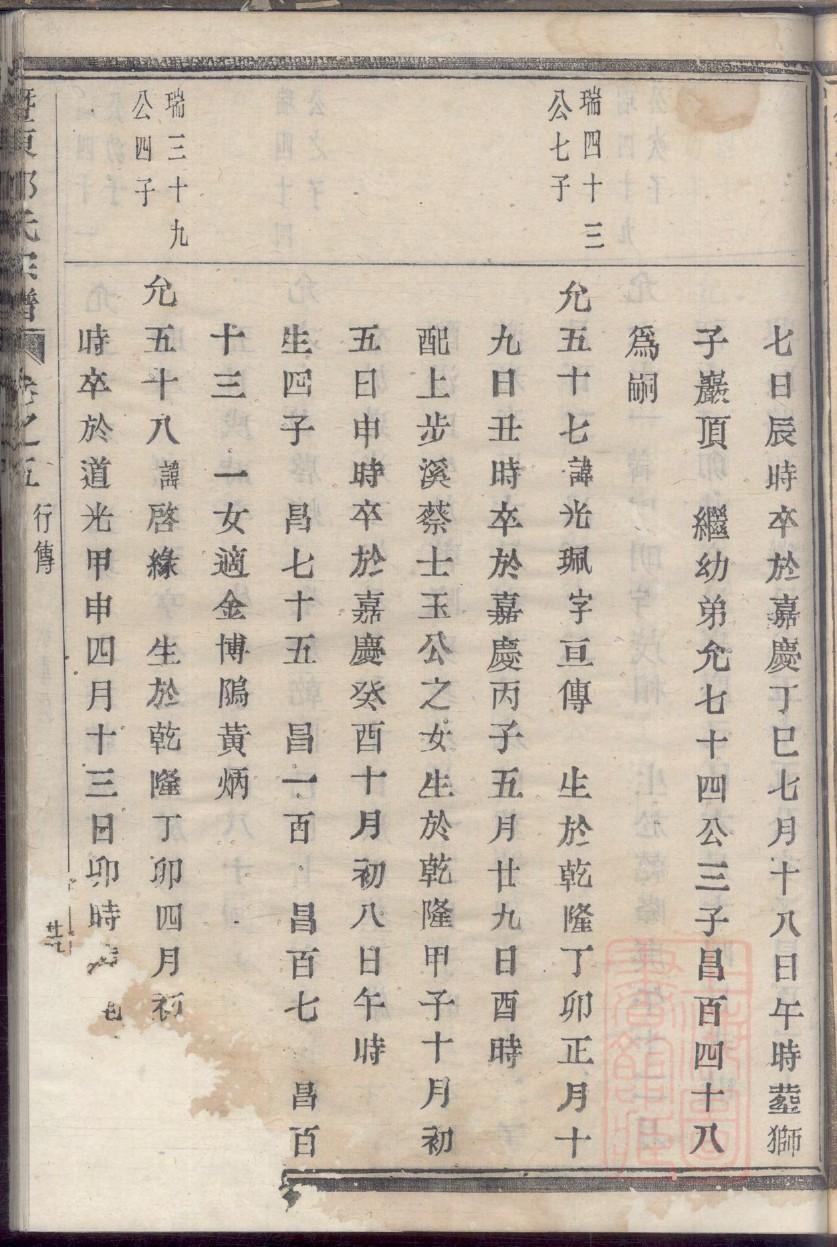 七日辰時卒於嘉慶丁巳七月十八日午時塟獅
子巖頂　繼幼弟允七十四公三子昌百四十八
爲嗣
瑞四十三
公七子
允五十七諱光珮字亘傳　生於乾隆丁卯正月十
九日丑時卒於嘉慶丙子五月廿九日酉時
配上步溪蔡士玉公之女生於乾隆甲子十月初
五日申時卒於嘉慶癸酉十月初八日午時
生四子　昌七十五　昌一百　昌百七　昌百
十三　一女適金博鴭黃炳
瑞三十九
公四子
允五十八諱啓緣　生於乾隆丁卯四月初
時卒於道光甲申四月十三日卯時
暨東邱氏宗譜　卷之五　行傳